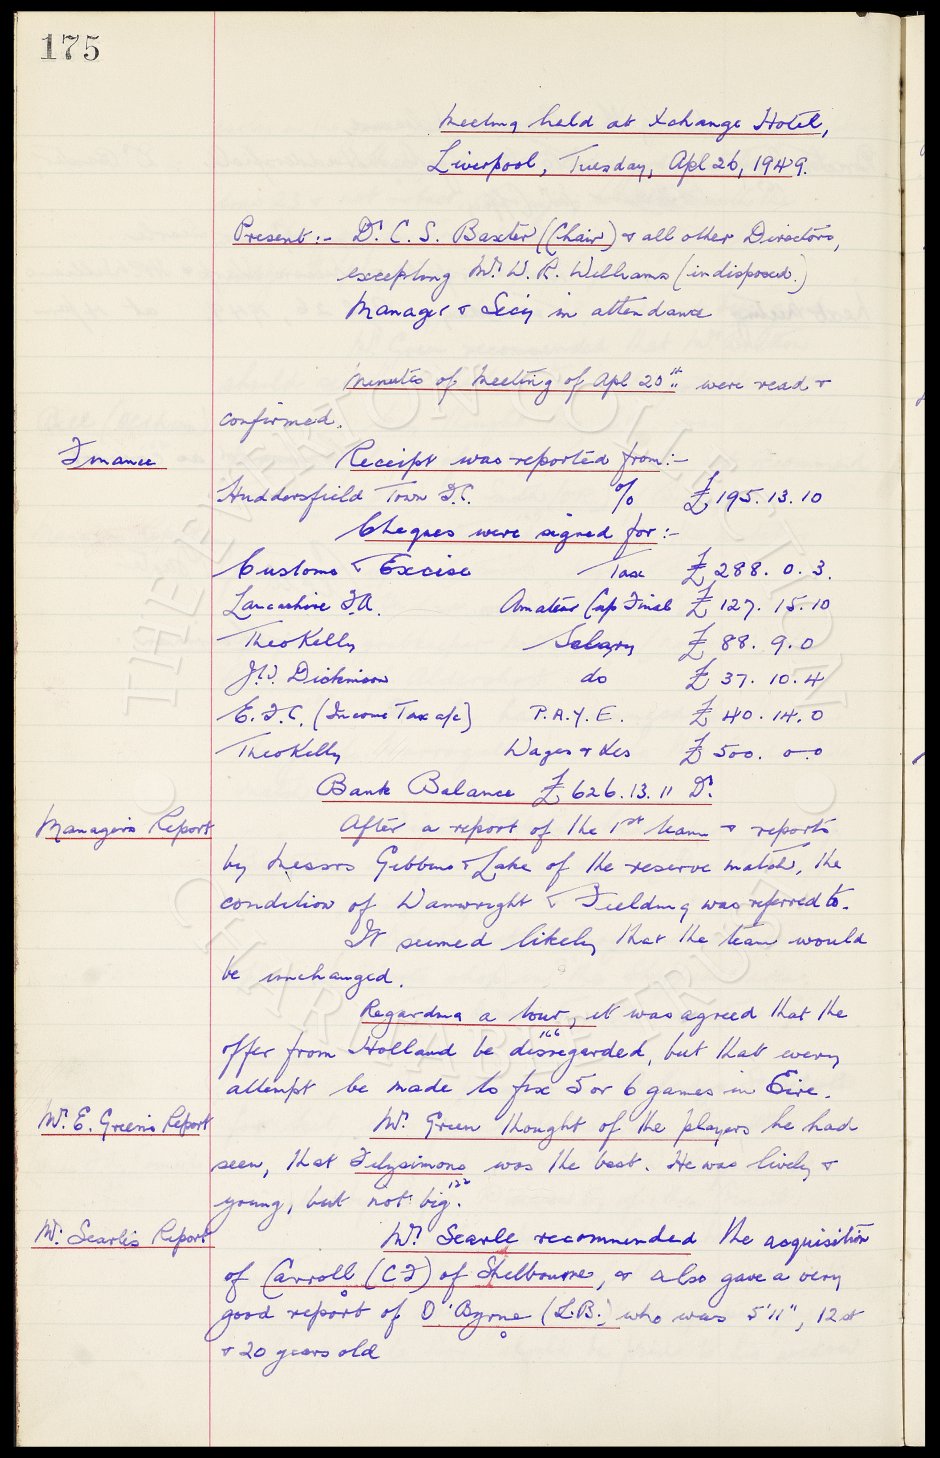 175
Meeting held at Xchange Hotel,
Liverpool, Tuesday, Apl 26, 1949.
Present:- Dr. C. S. Baxter (Chair) & all other Directors,
excepting Mr. W. R. Williams (indisposed.)
Manager & Secy in attendance
Minutes of Meeting of Apl 20th were read &
confirmed.
Finance Receipt was reported from:-
Huddersfield Town F.C. % £195.13.10
Cheques were signed for:-
Customs & Excise Tax £288. 0. 3.
Lancashire F.A. Amateur Cup Final £127. 15. 10
Theo Kelly Salary £88. 9. 0
J.W. Dickinson do £37. 10. 4
E.F.C. (Income Tax a/c) P.A.Y.E. £40. 14. 0
Theo Kelly Wages & Xes £500. 0-0
Bank Balance £626.13.11 Dr.
Manager's Report After a report of the 1st team & reports
by Messrs Gibbins & Lake of the reserve match, the
condition of Wainwright & Fielding was referred to.
It seemed likely that the team would
be unchanged.
Regarding a tour, it was agreed that the
offer from Holland be disregarded, but that every 166
attempt be made to fix 5 or 6 games in Eire.
Mr. E. Green's Report Mr. Green thought of the players he had
seen, that Fitzsimons was the best. He was lively &
young, but not big. 122
Mr. Searle's Report Mr. Searle recommended the acquisition
of Carroll (CF) of Shelbourne, & also gave a very
good report of O'Byrne (L.B.) who was 5'11", 12st
& 20 years old
THE EVERTON COLLECTION
CHARITABLE TRUST